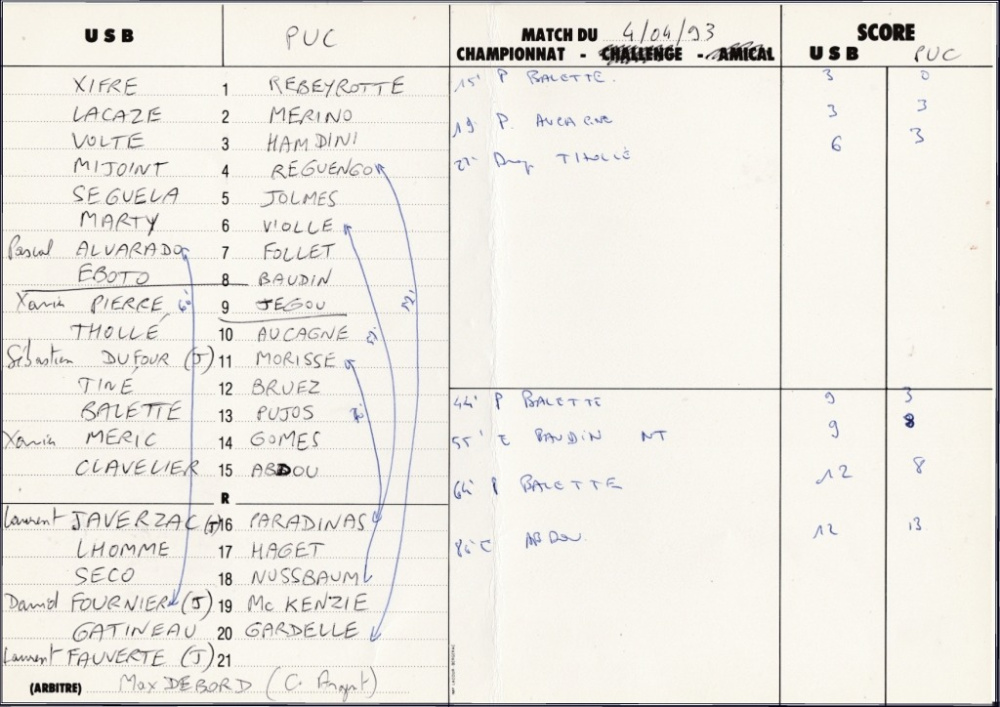 USB PUC MATCH DU 4/04/93 SCORE
CHAMPIONNAT - CHALLENGE - AMICAL USB PUC
XIFRE 1 REBEYROTTE
LACAZE 2 MERINO
VOLTE 3 HAMDINI
MIJOINT 4 REGUENGO
SEGUELA 5 JOLMES
MARTY 6 VIOLLE
Pascal ALVARADO 7 FOLLET
EBOTO 8 BAUDIN
Xavier PIERRE 9 JEGOU
THOLLÉ 10 AUCAGNE
Sébastien DUFOUR (J) 11 MORISSE
TINÉ 12 BRUEZ
BALETTE 13 PUJOS
Xavier MERIC 14 GOMES
CLAVELIER 15 ABDOU
R
Laurent JAVERZAC (J) 16 PARADINAS
LHOMME 17 HAGET
SECO 18 NUSSBAUM
Daniel FOURNIER (J) 19 Mc KENZIE
GATINEAU 20 GARDELLE
Laurent FAUVERTE (J) 21
(ARBITRE) Max DEBORD (C. Argent)
15' P BALETTE. 3 0
19' P. AUCAGNE 3 3
Drop THOLLÉ 6 3
44' P BALETTE 9 3
55' E BAUDIN NT 9 8
64' P BALETTE 12 8
E ABDOU. 12 13